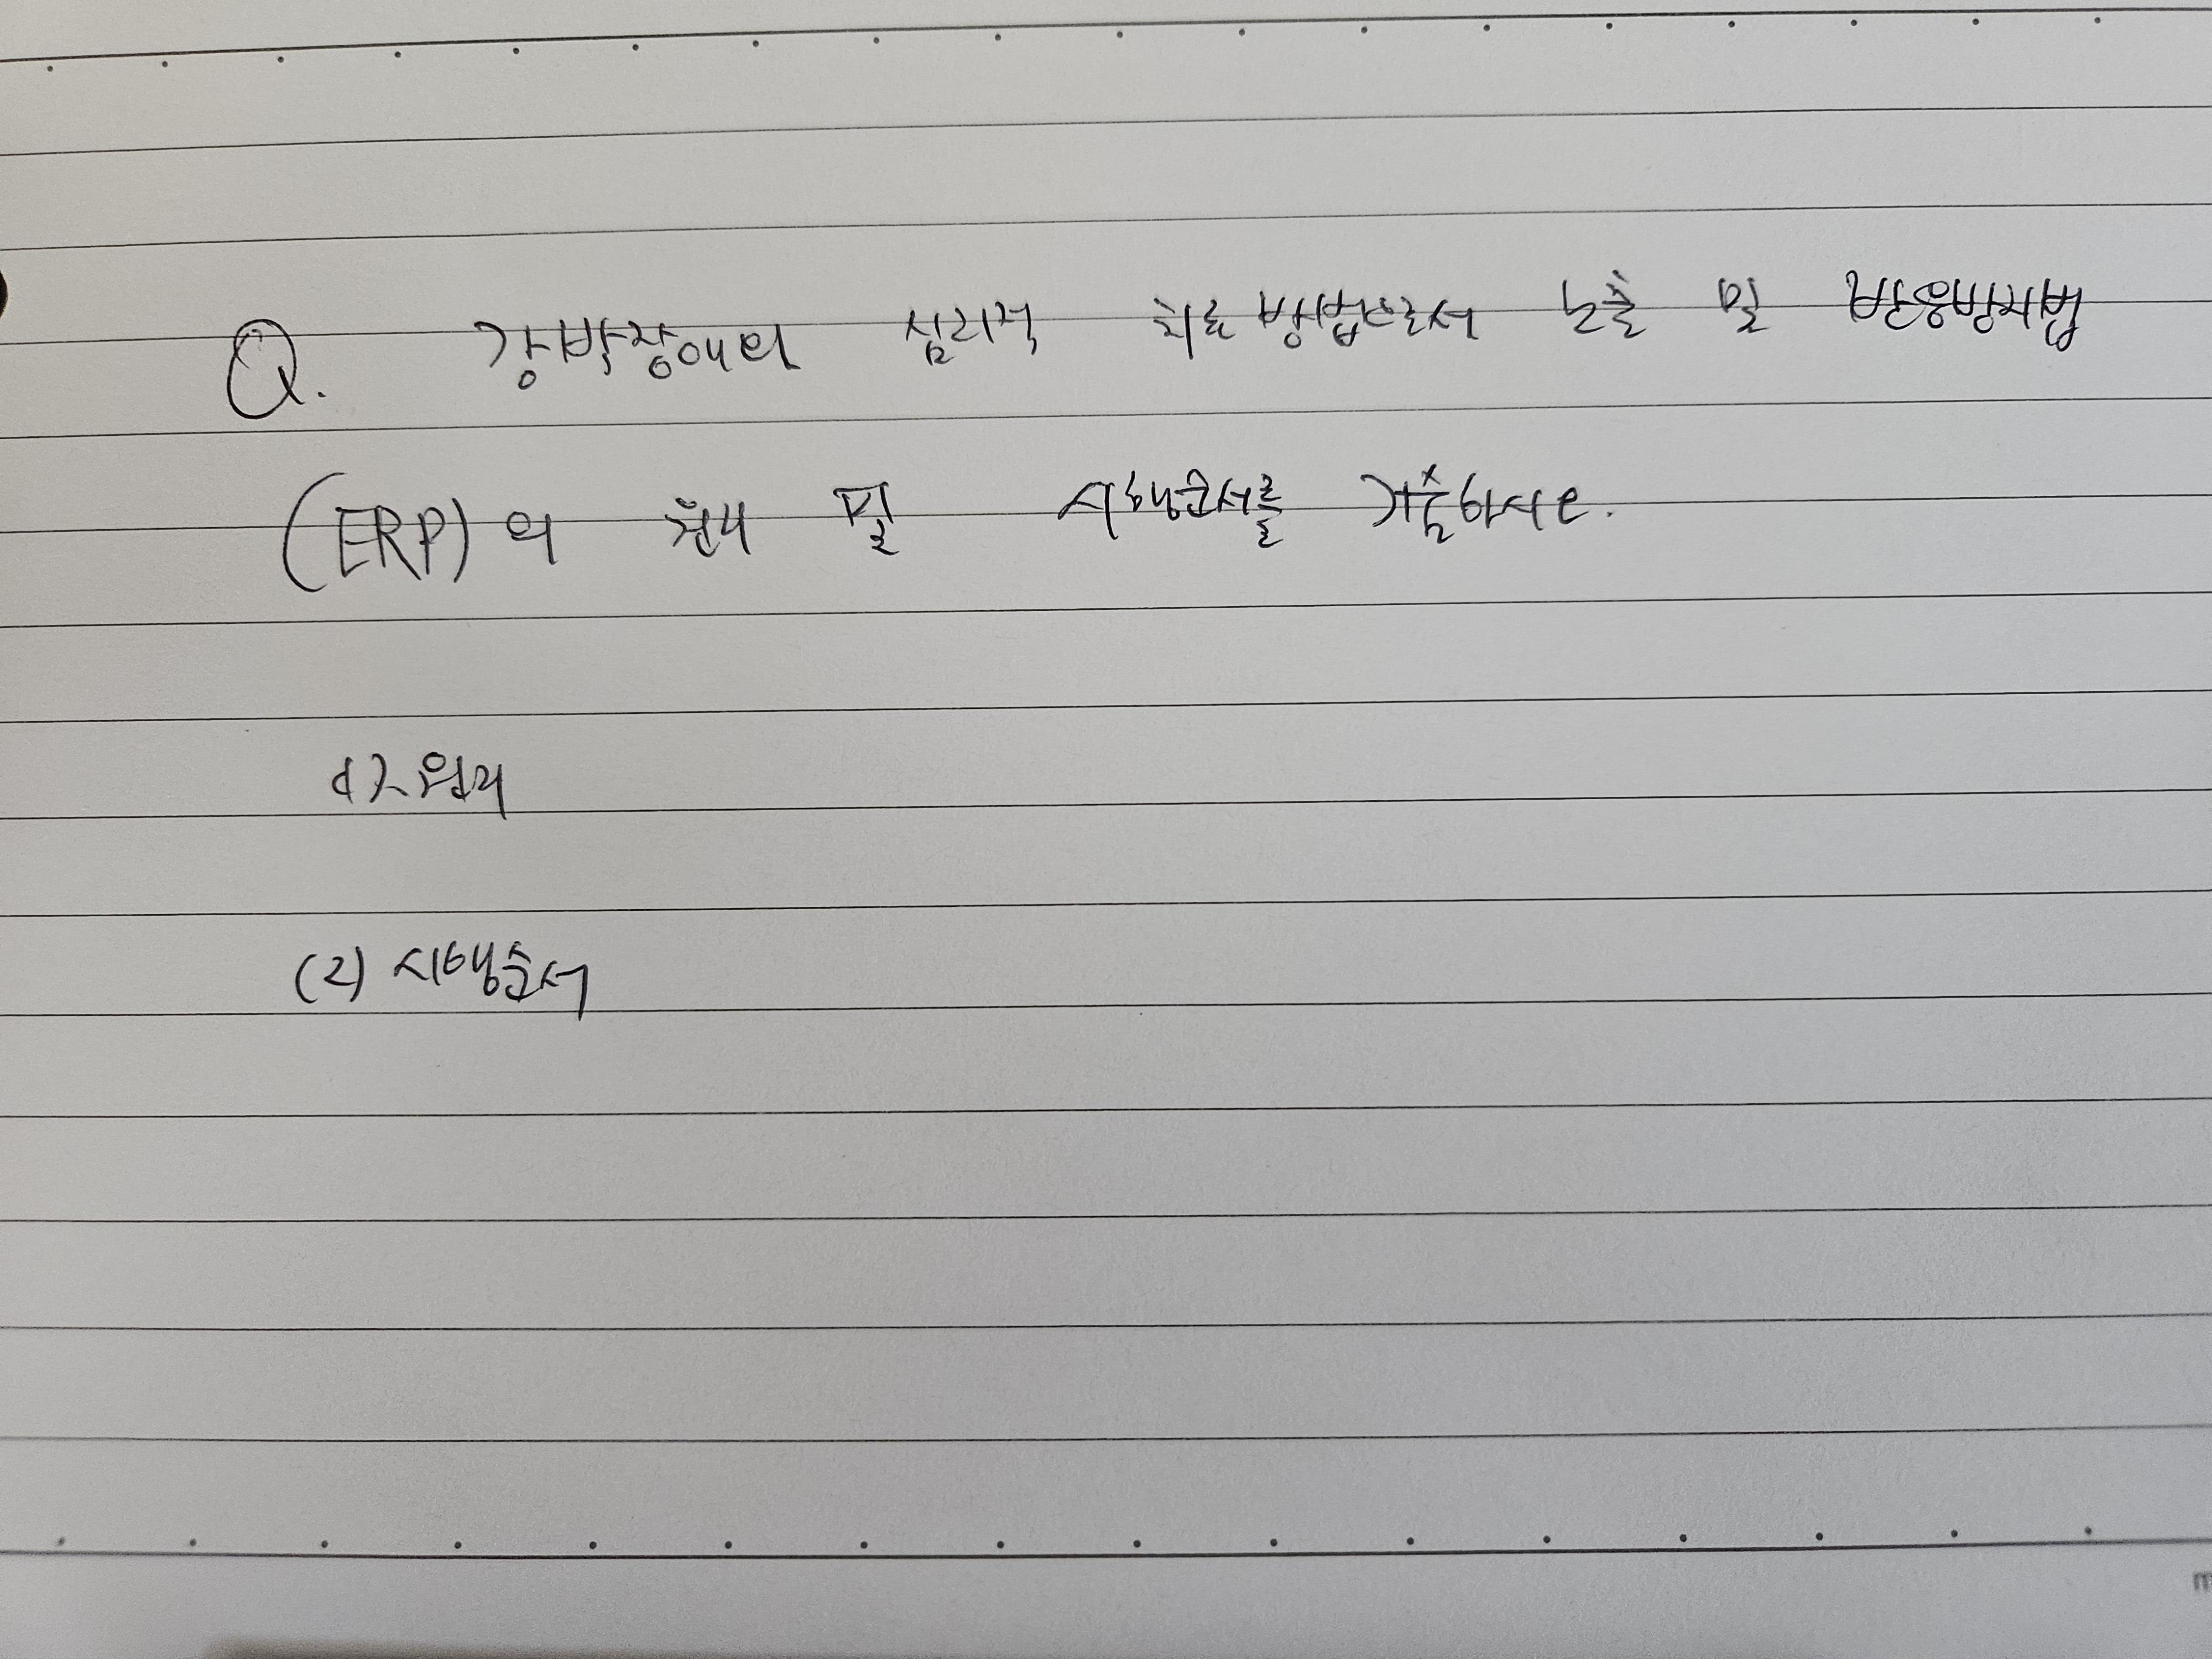 Q. 강박장애의 심리적 치료방법으로서 노출 및 반응방지법
(ERP)의 원리 및 시행순서를 기술하시오.
(1) 원리
(2) 시행순서